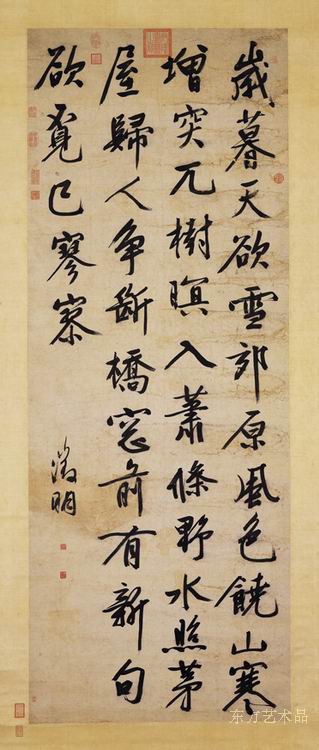 歲暮天欲雪郊原風色饒山寒
增突兀樹暝入蕭條野水照茅
屋歸人爭斷橋窓前有新句
欲覓已寥
徵明
东方艺术品